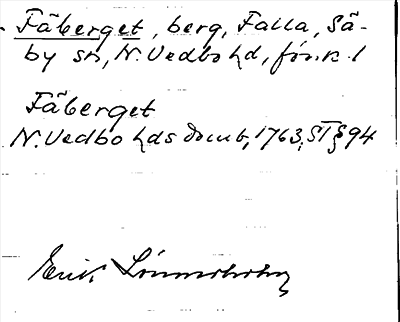 Fäberget, berg, Falla, Sä-
by sn, N. Vedbo hd, för.k. 1
Fäberget
N. Vedbo hds domb, 1763, ST § 94
Erik